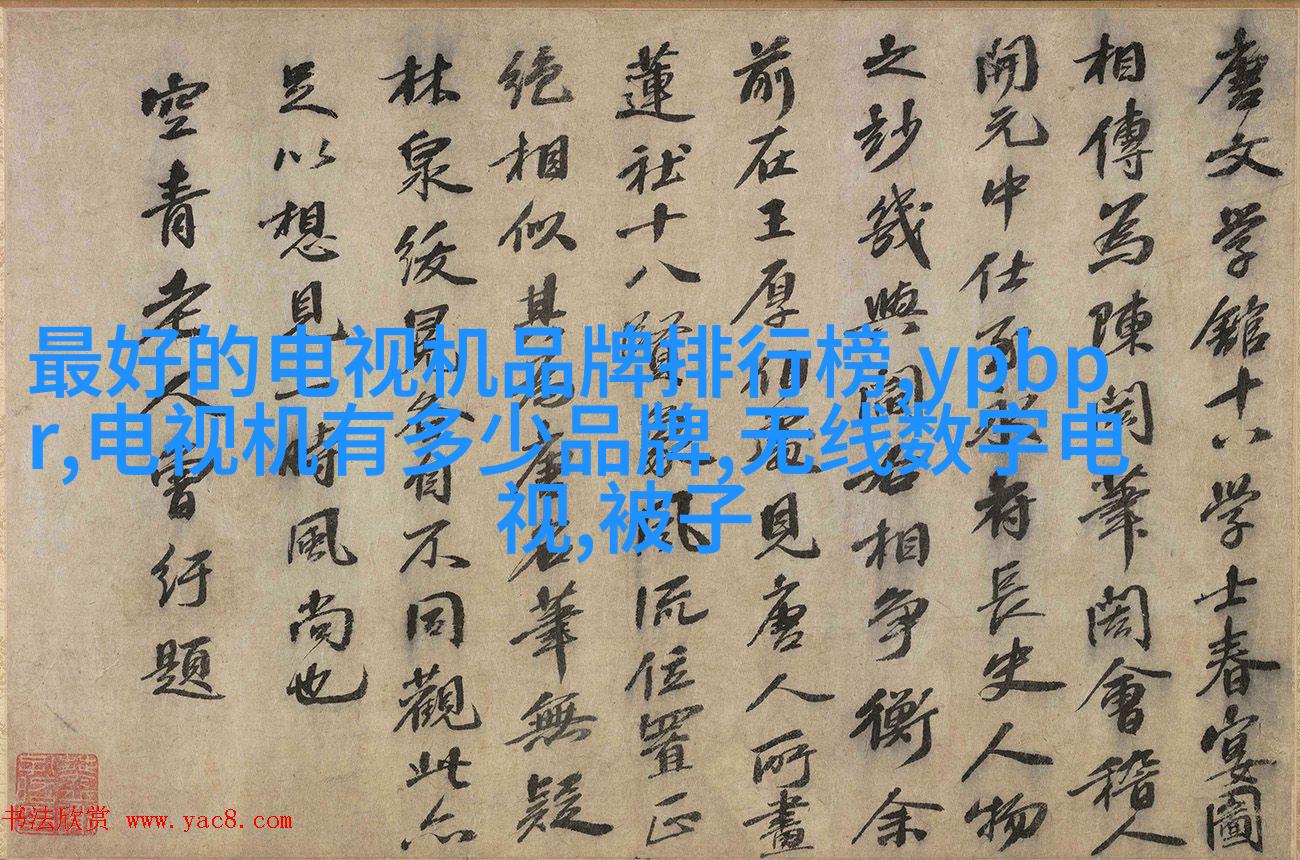 唐文学館十八学士春宴圖
相傳為陳閎筆閎會稽人
開元中仕長史人物
之玅幾與閻相争衡余
前在王厚見唐人所畫
蓮社十八賢風流位置正
絶相似其為唐名筆無疑
林泉緩有不同觀此亦
足以想見一時風尚也
空青老人曾紆題
最好的电视机品牌排行榜,ypbp
r,电视机有多少品牌,无线数字电
视,被子
书法欣赏 www.yac8.com